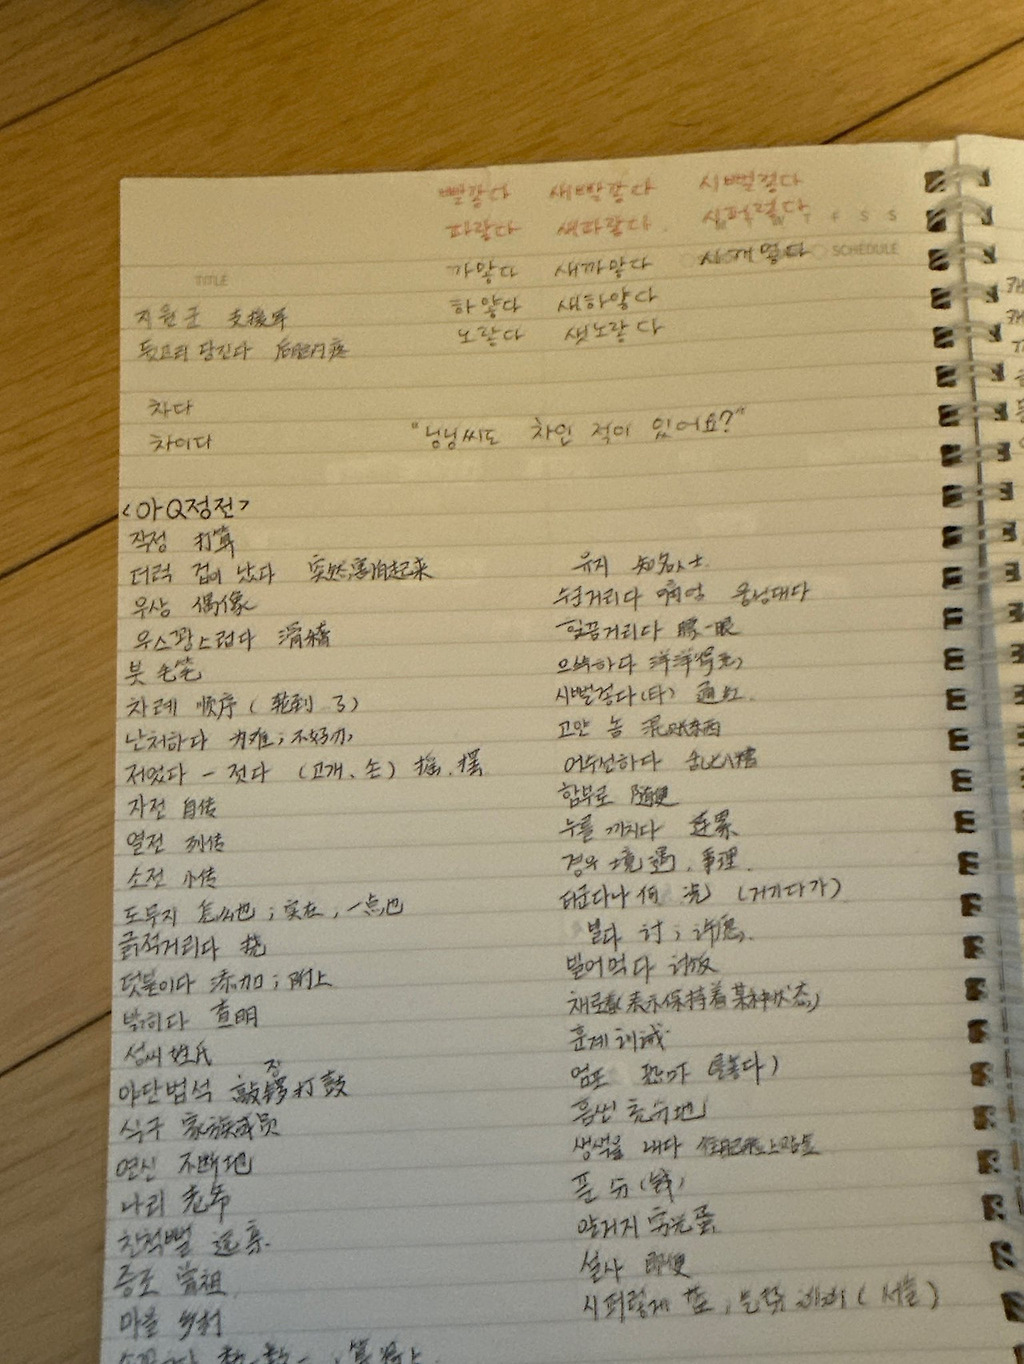 빨갛다 새빨갛다 시뻘겋다
파랗다 새파랗다 시퍼렇다
T F S S
까맣다 새까맣다 시꺼멓다
SCHEDULE
TITLE
하얗다 새하얗다
지원군 支援军
노랗다 샛노랗다
당긴다 后
차다
차이다 "닝닝씨도 차인 적이 있어요?"
<아Q정전>
작정 打算
더럭 겁이 났다 突然害怕起来
유지 知名人士
우상 偶像
수군거리다 嘀咕 웅성대다
우스꽝스럽다 滑稽
眨一眼
붓 毛笔
으쓱하다 洋洋得意
차례 顺序 (轮到 了)
시뻘겋다(타) 通红
난처하다 为难; 不好办
고얀 놈 混账东西
저었다 - 젓다 (고개, 손) 摇. 摆
어수선하다 乱七八糟
자전 自传
함부로 随便
열전 列传
누를 끼치다 连累
소전 小传
경우 境遇. 事理.
도무지 怎么也; 实在, 一点也
何 (거기다가)
긁적거리다 挠
빌다 讨; 许愿.
덧붙이다 添加; 附上
빌어먹다 讨饭
밝히다 查明
채로 (表示保持着某种状态)
성씨 姓氏
훈계 训诫
야단법석 敲锣打鼓
장
엄포 恐吓 (놓다)
식구 家族成员
연신 不断地
생색을 내다 往脸上贴金
나리 老爷
푼 分 (钱)
친척뻘 远亲.
증조 曾祖
설사 即使
마을 乡村
시퍼렇게 (서슬)